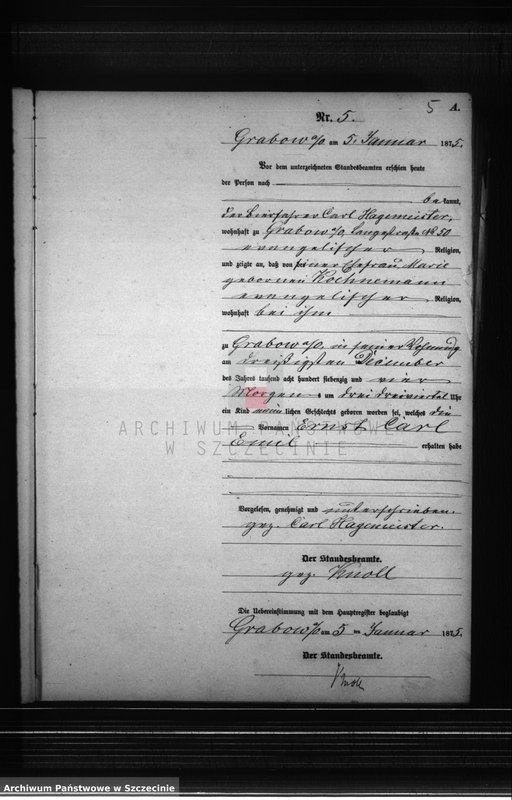 5 A.
Nr. 5.
Grabow a/O am 5. Januar 1875.
Vor dem unterzeichneten Standesbeamten erschien heute
der Person nach
bekannt,
der Bierfahrer Carl Hagemeister,
wohnhaft zu Grabow a/O, Langestraße No 50
evangelischer Religion,
und zeigte an, daß von seiner Ehefrau Marie
geborenen Kochnemann
evangelischer Religion,
wohnhaft bei ihm
zu Grabow a/O, in seiner Wohnung
am dreißigsten December
des Jahres tausend acht hundert siebenzig und vier
Morgens um drei dreiviertel Uhr
ein Kind männlichen Geschlechts geboren worden sei, welches die
Vornamen Ernst Carl
Emil erhalten habe
ARCHIWUM PAŃSTWOWE
W SZCZECINIE
Vorgelesen, genehmigt und unterschrieben.
gez. Carl Hagemeister.
Der Standesbeamte.
gez. Knoll
Die Uebereinstimmung mit dem Hauptregister beglaubigt
Grabow a/O am 5 ten Januar 1875.
Der Standesbeamte.
Knoll
Archiwum Państwowe w Szczecinie